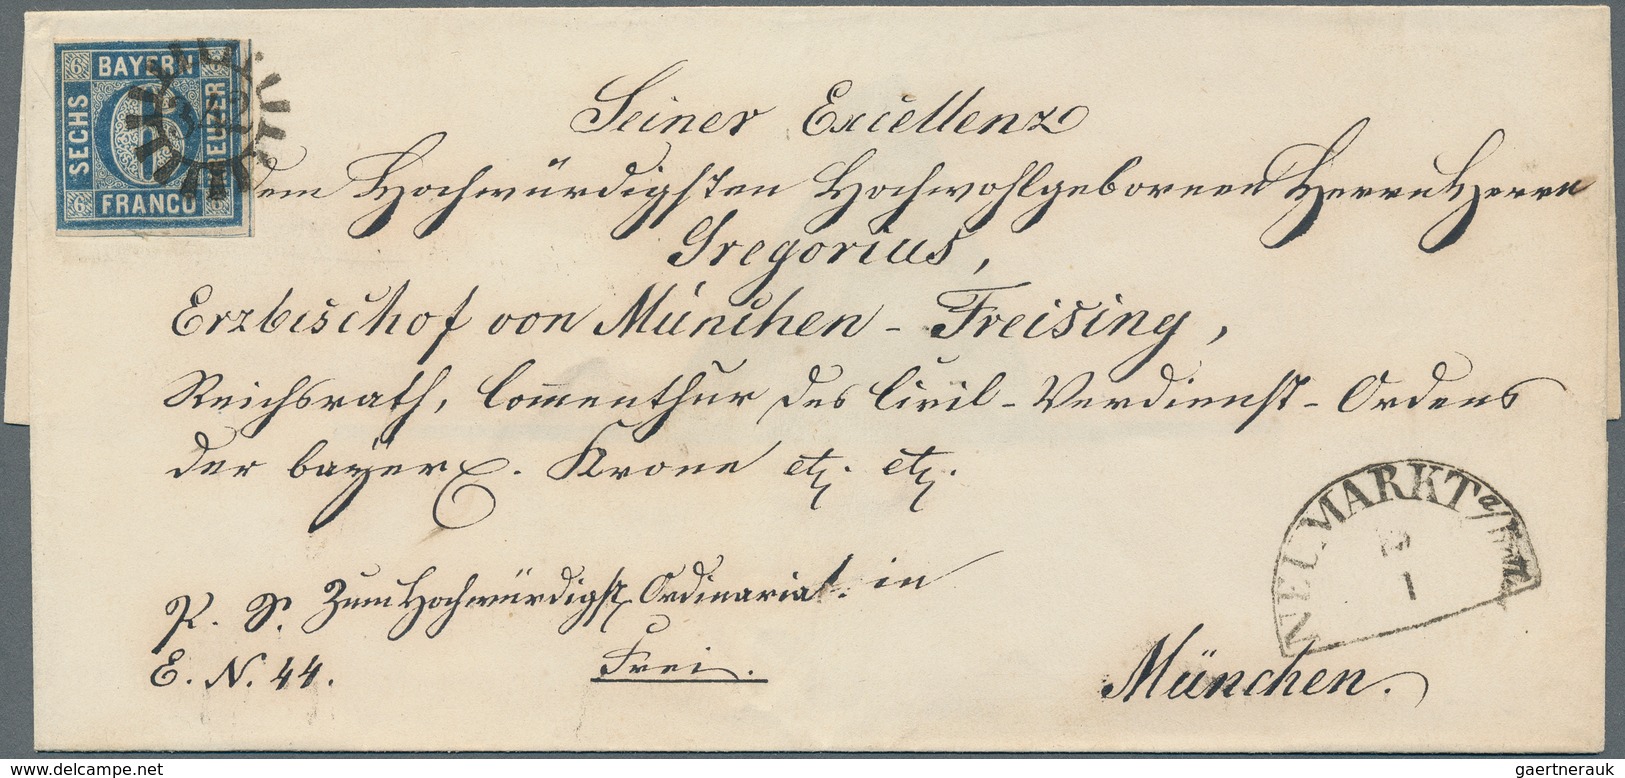 6 BAYERN 6
SECHS
KREUZER
6 FRANCO
Seiner Excellenz
dem Hochwürdigsten Hochwohlgebornen Herrn Herrn
Gregorius,
Erzbischof von München-Freising,
Reichsrath, Commenthur des Civil-Verdienst-Ordens
der bayer. Krone etz. etz.
NEUMARKT a/Rott.
1
P. S. Zum Hochwürdigst. Ordinariat in
E. N. 44. Frei. München.
gaertnerauk